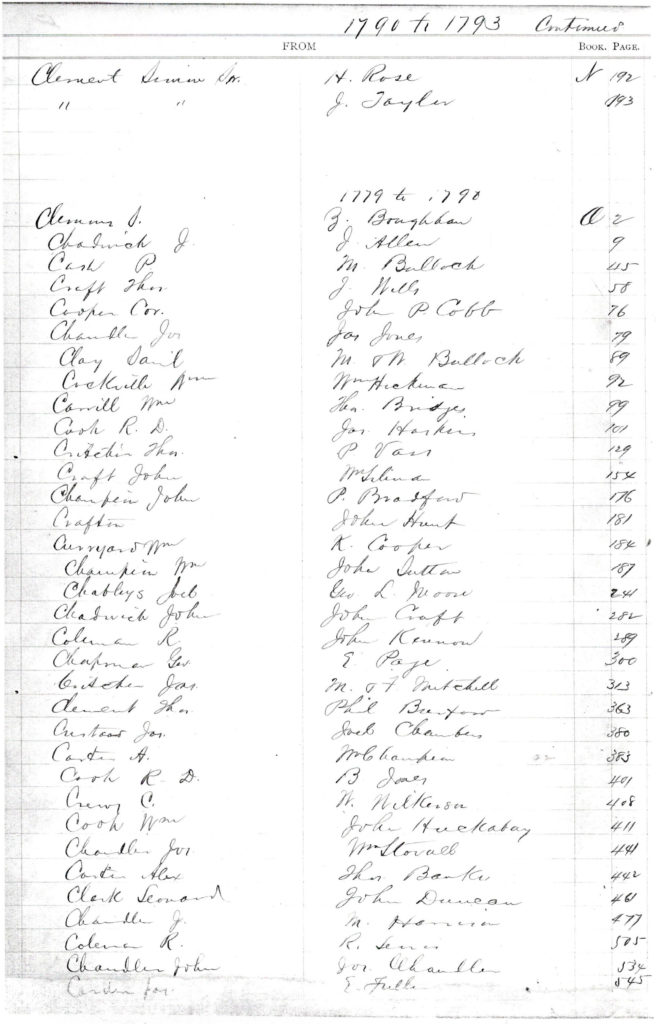 1790 to 1793 Continued
FROM BOOK. PAGE.
Clement Simon Sr. H. Rose N 192
" " J. Taylor 193
1779 to 1790
Clemons S. Z. Boughhan O 2
Chadwick J. J. Allen 9
Cash P M. Bullock 45
Craft Thos. J. Wells 58
Cooper Cor. John P. Cobb 76
Chandler Jos Jas Jones 79
Clay Danil M. & W Bullock 89
Cockville Wm Wm Hickman 92
Carrill Wm Thos. Bridges 99
Cook R. D. Jos. Haskins 101
Critcher Thos. P Vass 129
Craft John 154
Champin John P. Bradford 176
Crafton John Hunt 181
Wm K. Cooper 184
Champin Wm John Sutton 187
Joel Geo L. Moore 241
Chadwick John John Craft 282
Coleman R. John Kennon 289
Chapman Geo E. Page 300
Critcher Jas. M. & F Mitchell 313
Clement Thos. Phil 363
Jos. Joel Chambers 380
Carter A. Wm Champin 383
Cook R. D. B Jones 401
Crews C. W. Wilkerson 408
Cook Wm John Huckabay 411
Chandler Jos Wm Stovall 441
Carter Alex Thos Banks 442
Clark Leonard John Duncan 461
Chandler J. M. Harrison 477
Coleman R. R. 505
Chandler John Jos Chandler 534
Jos. E. Fuller 545